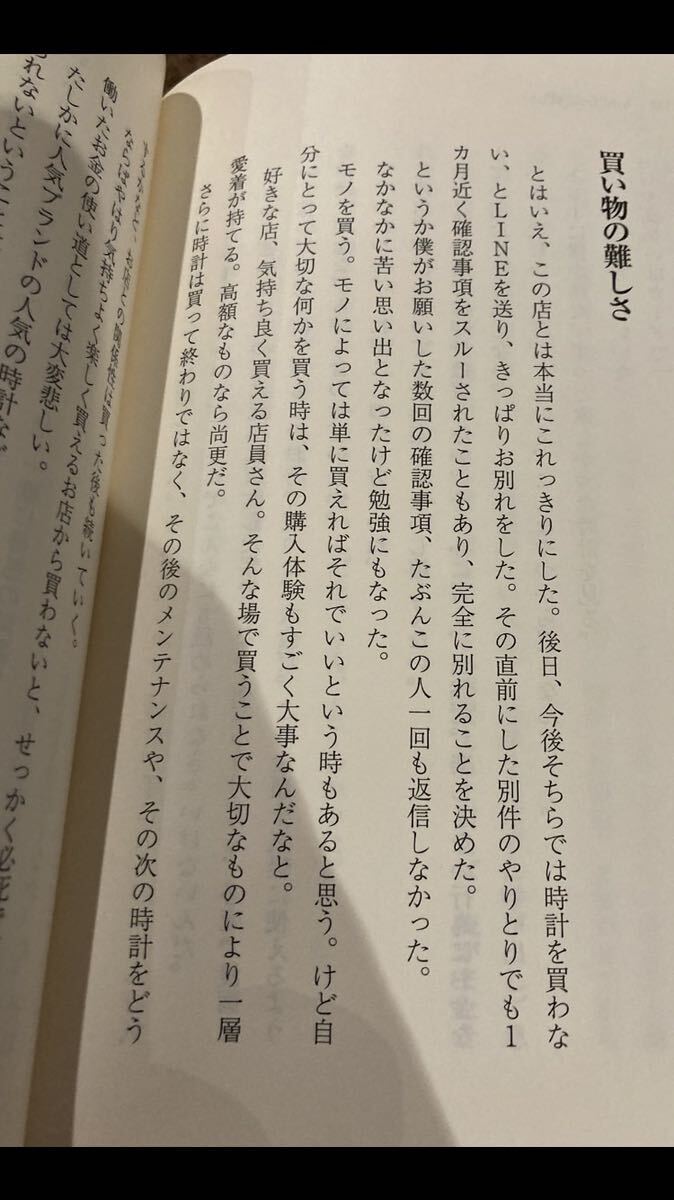 買い物の難しさ
とはいえ、この店とは本当にこれっきりにした。後日、今後そちらでは時計を買わな
い、とLINEを送り、きっぱりお別れをした。その直前にした別件のやりとりでも1
カ月近く確認事項をスルーされたこともあり、完全に別れることを決めた。
というか僕がお願いした数回の確認事項、たぶんこの人一回も返信しなかった。
なかなかに苦い思い出となったけど勉強にもなった。
モノを買う。モノによっては単に買えればそれでいいという時もあると思う。けど自
分にとって大切な何かを買う時は、その購入体験もすごく大事なんだなと。
好きな店、気持ち良く買える店員さん。そんな場で買うことで大切なものにより一層
愛着が持てる。高額なものなら尚更だ。
さらに時計は買って終わりではなく、その後のメンテナンスや、その次の時計をどう
お店との関係性は買った後も続いていく。
ならばやはり気持ちよく楽しく買えるお店から買わないと、せっかく必死
働いたお金の使い道としては大変悲しい。
たしかに人気ブランドの人気の時計など
れないということ